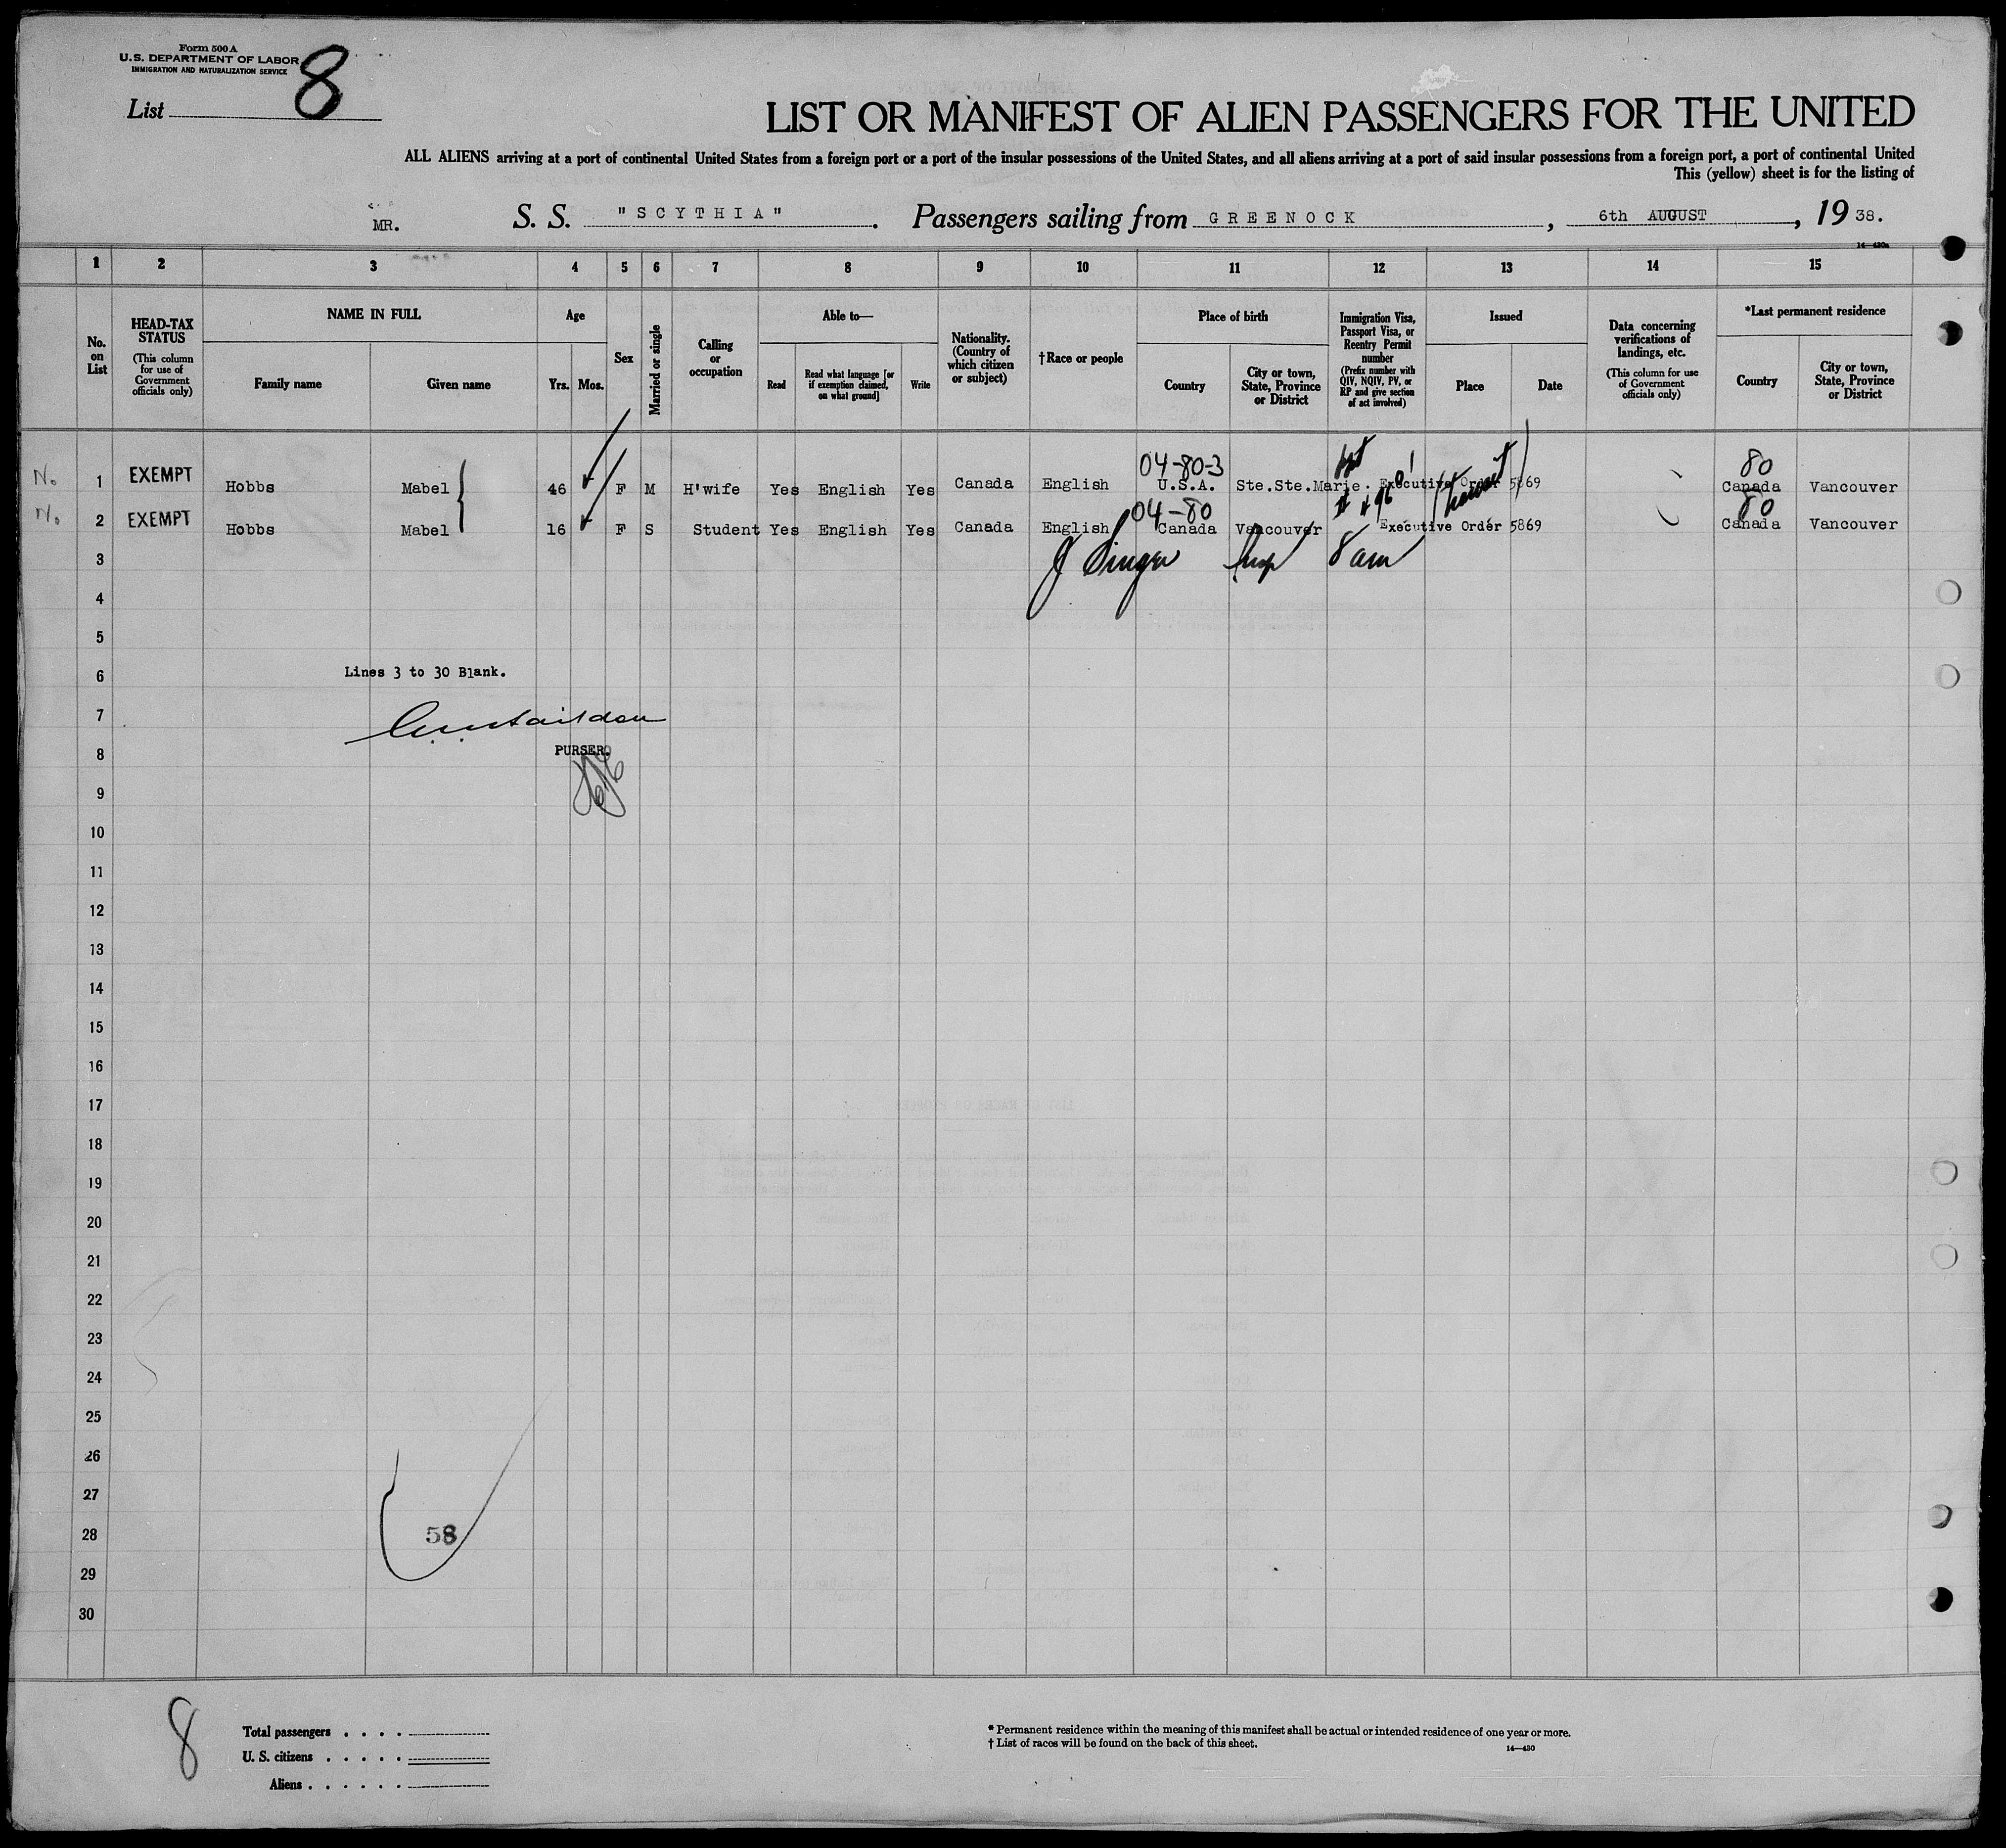 Form 500 A
U.S. DEPARTMENT OF LABOR
IMMIGRATION AND NATURALIZATION SERVICE
List 8
LIST OR MANIFEST OF ALIEN PASSENGERS FOR THE UNITED
ALL ALIENS arriving at a port of continental United States from a foreign port or a port of the insular possessions of the United States, and all aliens arriving at a port of said insular possessions from a foreign port, a port of continental United
This (yellow) sheet is for the listing of
MR. S. S. "SCYTHIA". Passengers sailing from GREENOCK, 6th AUGUST, 19 38.
14—430a
1 2 3 4 5 6 7 8 9 10 11 12 13 14 15
No. on List
HEAD-TAX STATUS (This column for use of Government officials only)
NAME IN FULL
Family name Given name
Age
Yrs. Mos.
Sex
Married or single
Calling or occupation
Able to—
Read
Read what language [or if exemption claimed, on what ground]
Write
Nationality. (Country of which citizen or subject)
†Race or people
Place of birth
Country
City or town, State, Province or District
Immigration Visa, Passport Visa, or Reentry Permit number (Prefix number with QIV, NQIV, PV, or RP and give section of act involved)
Issued
Place Date
Data concerning verifications of landings, etc. (This column for use of Government officials only)
*Last permanent residence
Country
City or town, State, Province or District
04-80-3 80
No. 1 EXEMPT Hobbs Mabel 46 F M H'wife Yes English Yes Canada English U.S.A. Ste.Ste.Marie. Executive Order 5869 Canada Vancouver
04-80 80
No. 2 EXEMPT Hobbs Mabel 16 F S Student Yes English Yes Canada English Canada Vancouver Executive Order 5869 Canada Vancouver
3
J Singer Insp 8 am
4
5
6 Lines 3 to 30 Blank.
7
8 PURSER.
9
10
11
12
13
14
15
16
17
18
19
20
21
22
23
24
25
26
27
28 58
29
30
8
Total passengers . . . .
U. S. citizens . . . . .
Aliens . . . . . .
* Permanent residence within the meaning of this manifest shall be actual or intended residence of one year or more.
† List of races will be found on the back of this sheet.
14—430